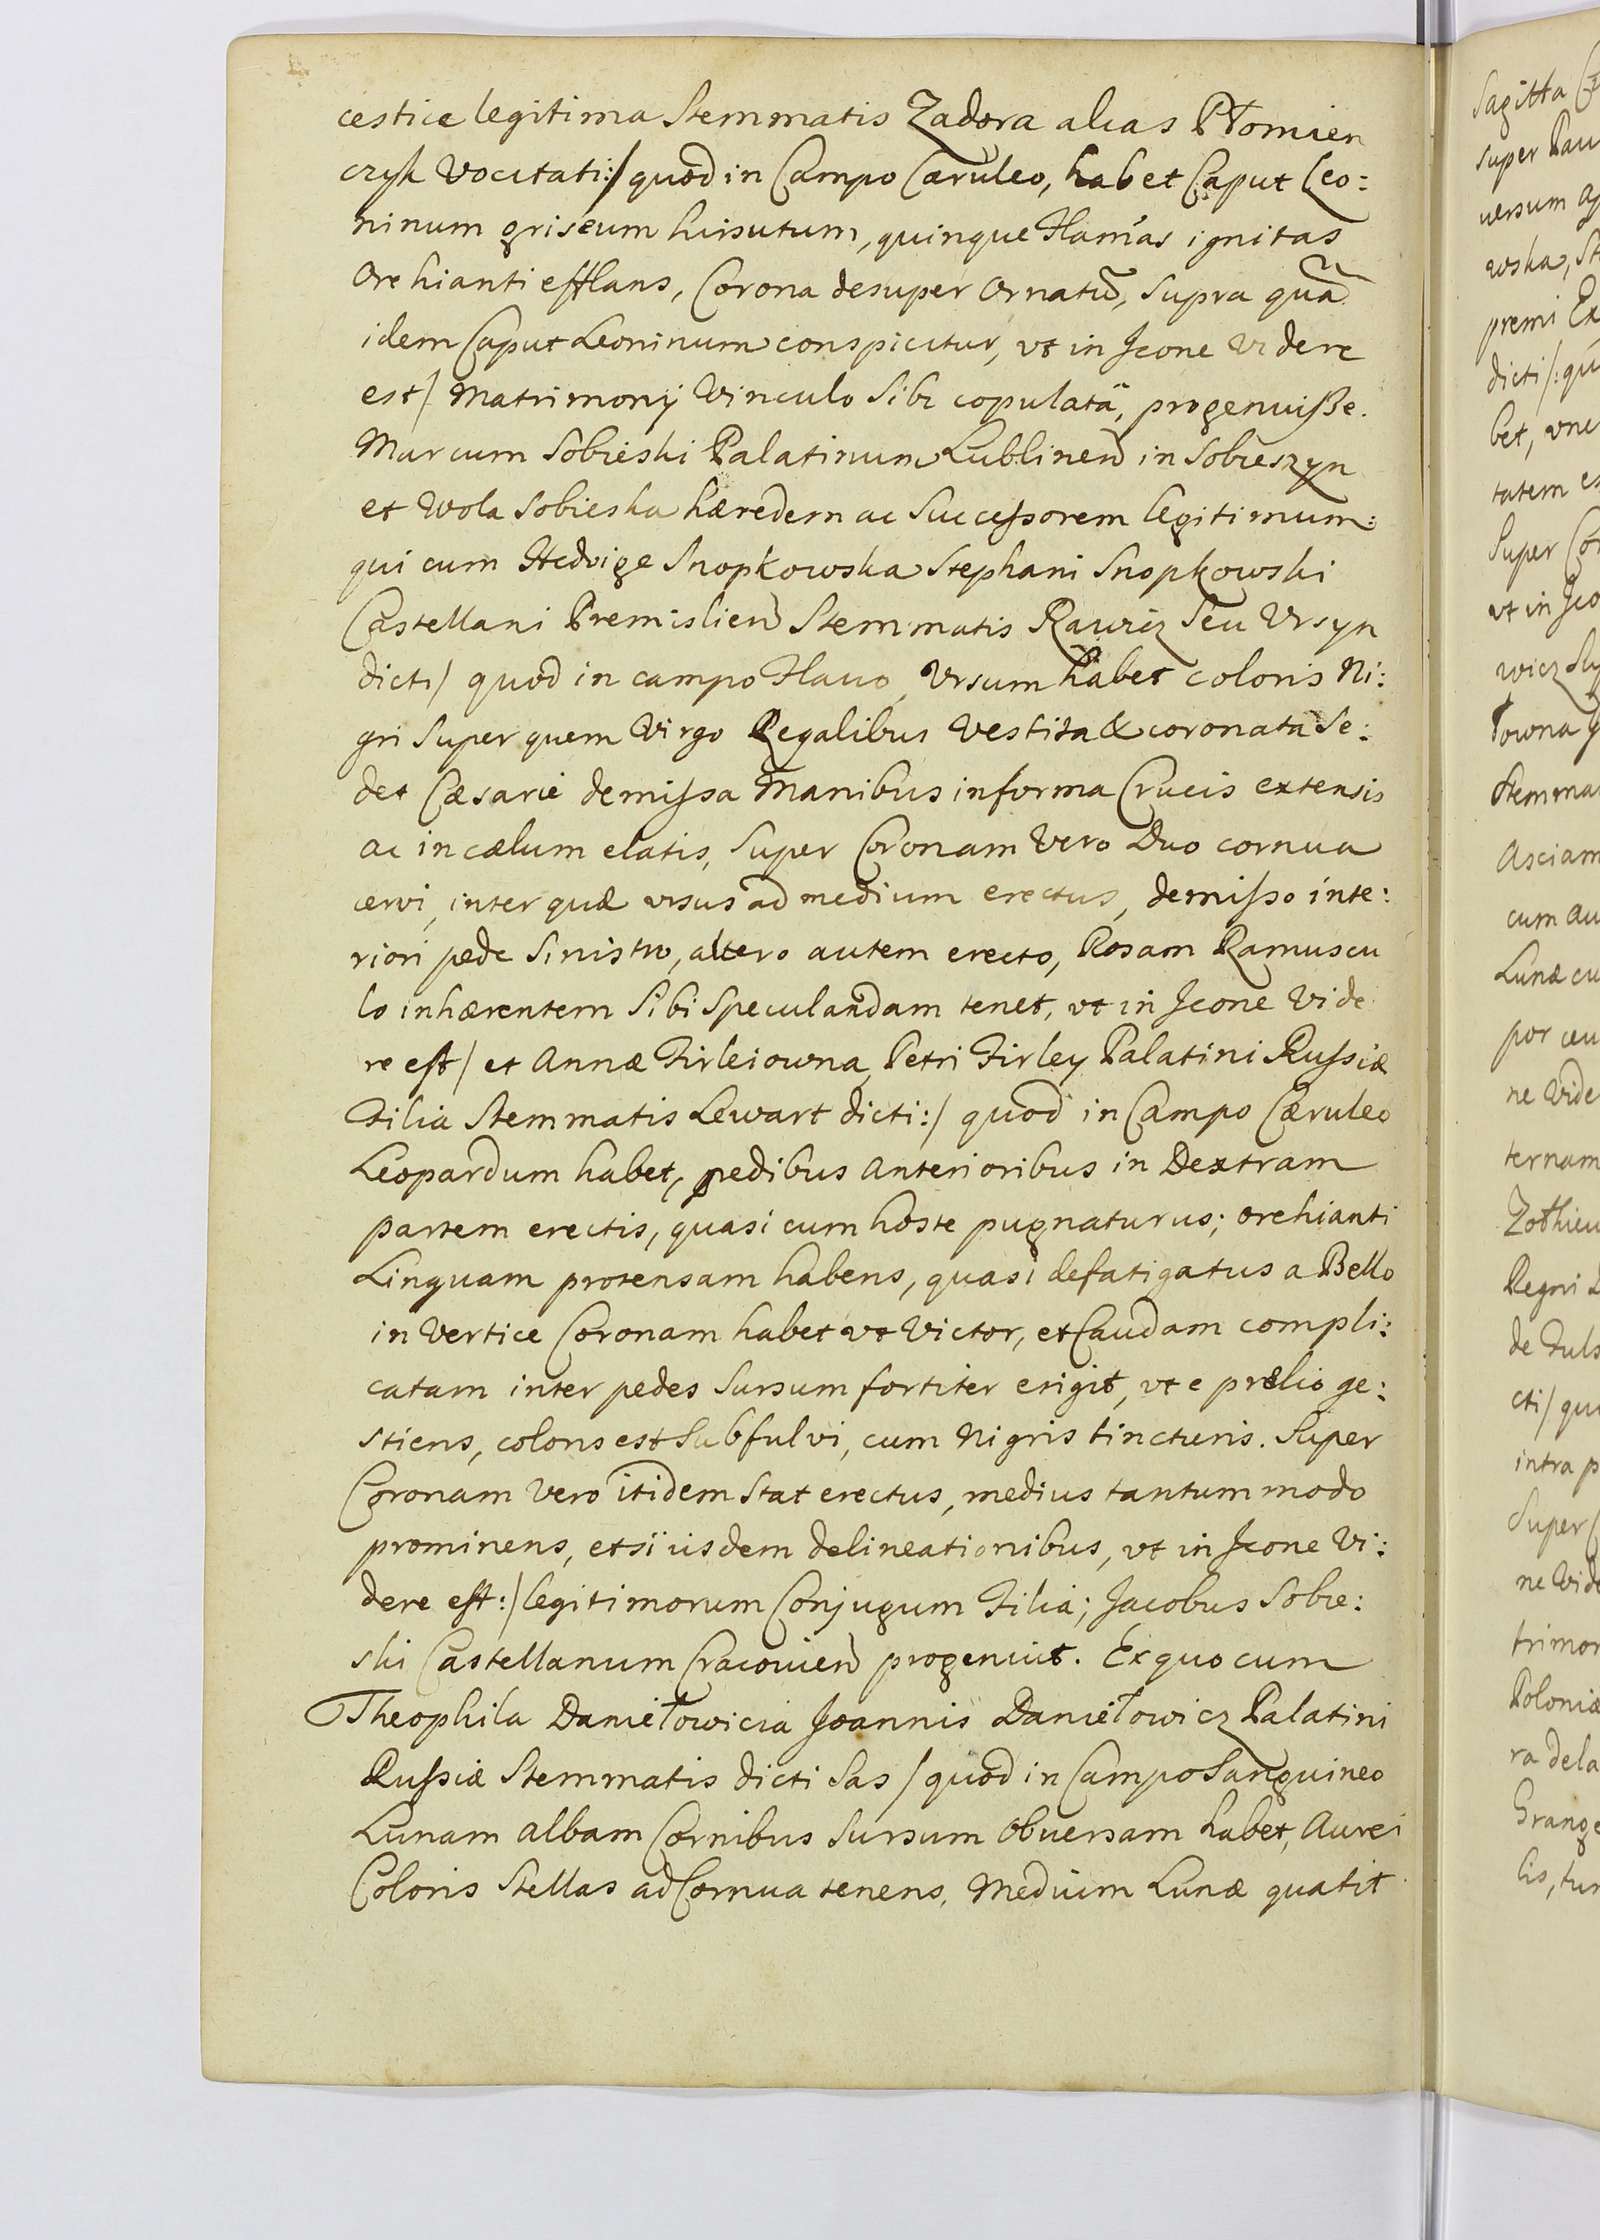 cestice legitima Stemmatis Zadora alias Płomien
czyk vocitati:/ quod in Campo Cæruleo, habet Caput Leo:
ninum griseum hirsutum, quinque Flam̃as ignitas
Ore hianti efflans, Corona desuper Ornatũ, supra quã
idem Caput Leoninum conspicitur, vt in Jcone videre
est/ Matrimonij Vinculo Sibi copulatã, progenuisse.
Marcum Sobieski Palatinum Lublinen in Sobieszyn
et Wola Sobieska hæredem ac Successorem legitimum:
qui cum Hedvige Snopkowska Stephani Snopkowski
Castellani Premislien Stemmatis Rawicz Seu Vrsyn
dicti/ quod in campo Flauo, Vrsum habet coloris Ni:
gri Super quem Virgo Regalibus Vestita & coronata Se:
det Cæsarie demissa Manibus in forma Crucis extensis
ac in cælum elatis, Super Coronam Vero Duo cornua
cervi, inter quæ vrsus ad medium erectus, demisso inte:
riori pede Sinistro, altero autem erecto, Rosam Ramuscu
lo inhærentem Sibi Speculandam tenet, vt in Jcone Vide
re est/ et Annæ Firleiowna, Petri Firley Palatini Russiæ
Filia Stemmatis Lewart dicti:/ quod in Campo Cæruleo
Leopardum habet, pedibus Anterioribus in Dextram
partem erectis, quasi cum hoste pugnaturus; ore hianti
Linguam protensam habens, quasi defatigatus a Bello
in Vertice Coronam habet vt Victor, et Caudam compli:
catam inter pedes Sursum fortiter erigit, vt e prælio ge:
stiens, coloris est Subfulvi, cum Nigris tincturis. Super
Coronam Vero itidem Stat erectus, medius tantum modo
prominens, etsi iisdem delineationibus, vt in Jcone Vi:
dere est:/ legitimorum Conjugum Filia; Jacobus Sobie:
ski Castellanum Cracouien progenuit. Ex quo cum
Theophila Daniełowicia Joannis Daniełowicz Palatini
Russiæ Stemmatis dicti Sas / quod in Campo Sanguineo
Lunam albam Cornibus Sursum Obuersam habet, Aurei
Coloris Stellas ad Cornua tenens, Medium Lunæ quatit
Sagitta
super
uersum
wska,
premi
dicti/:
bet,
tatem
Super
vt in
wicz
łowna
Stemma
Asciam
cum
Lunæ
por
ne
ternam
Regni
de
cti/
intra
Super
ne
trimo
Poloniæ
ra dela
Grange
lis,